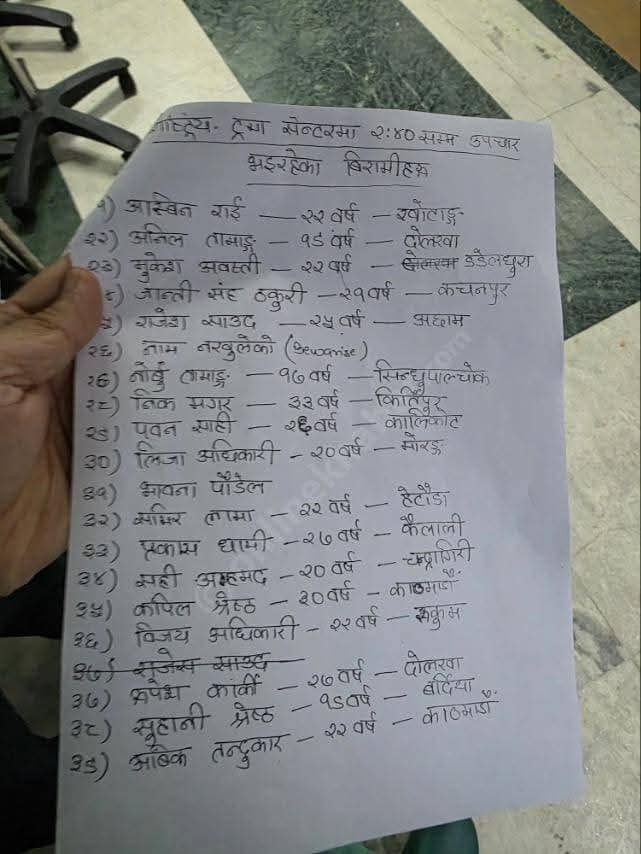 राष्ट्रिय ट्रमा सेन्टरमा २:४० सम्म उपचार
भइरहेका बिरामीहरू
१) आस्विन राई — २२ वर्ष — खोटाङ्ग
२२) अनिल तामाङ्ग — १९ वर्ष — दोलखा
२३) मुकेश अवस्ती — २२ वर्ष — दोलखा डडेलधुरा
जान्ती संह ठकुरी — २१ वर्ष — कंचनपुर
राजेश साउद — २५ वर्ष — अछाम
२६) नाम नखुलेको
२७) नोर्बु तामाङ्ग — १७ वर्ष — सिन्धुपाल्चोक
२८) निक मगर — ३३ वर्ष — किर्तिपुर
२९) पवन साही — २६ वर्ष — कालिकोट
३०) लिजा अधिकारी — २० वर्ष — मोरङ्ग
३१) भावना पौडेल
३२) समिर लामा — २२ वर्ष — हेटौडा
३३) प्रकास धामी — २७ वर्ष — कैलाली
३४) सही अहमद — २० वर्ष — चन्द्रागिरी
३५) कपिल श्रेष्ठ — ३० वर्ष — काठमाडौं
३६) विजय अधिकारी — २२ वर्ष — रुकुम
३७) राजेस साउद
३७) रुपेश कार्की — २७ वर्ष — दोलखा
३८) सुहानी श्रेष्ठ — १९ वर्ष — बर्दिया
३९) आंबिक तन्दुकार — २२ वर्ष — काठमाडौं